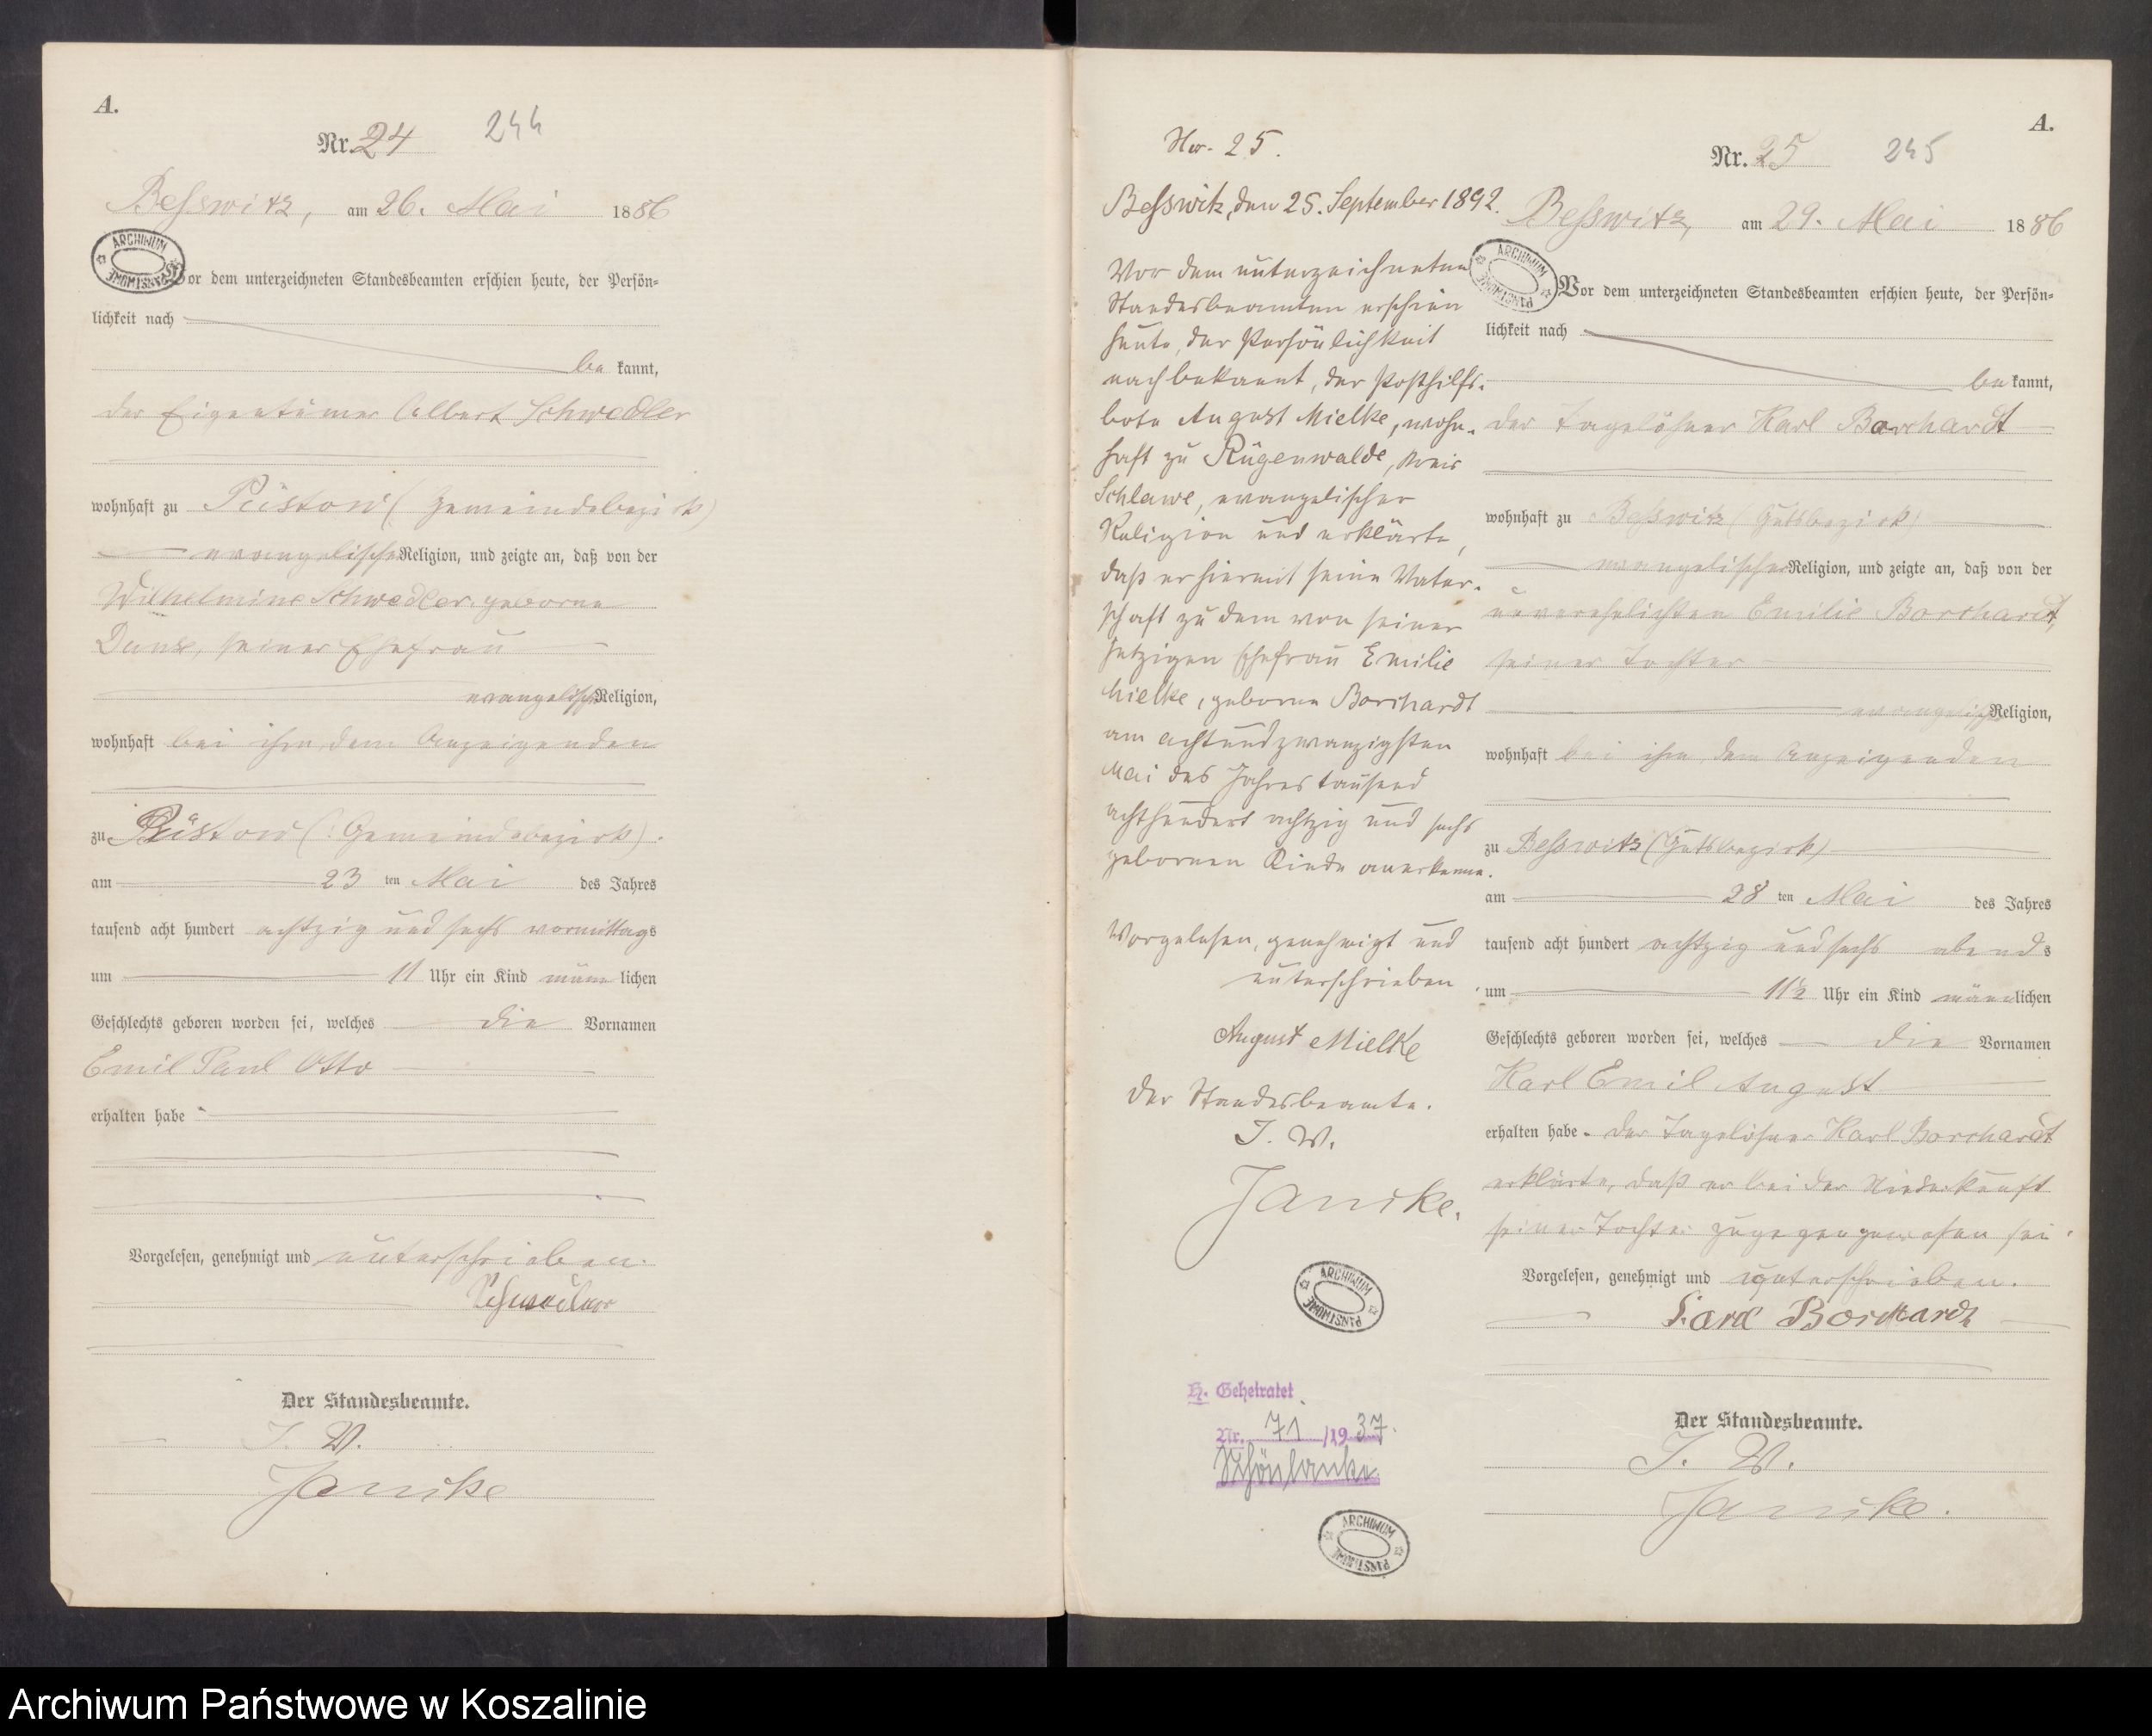 A.
Nr. 24 244
Beßwitz, am 26. Mai 1886
ARCHIWUM PAŃSTWOWE
Vor dem unterzeichneten Standesbeamten erschien heute, der Persön-
lichkeit nach
be kannt,
der Eigentümer Albert Schwedler
wohnhaft zu Püstow (Gemeindebezirk)
evangelischer Religion, und zeigte an, daß von der
Wilhelmine Schwedler geborne
seiner Ehefrau
evangelisch Religion,
wohnhaft bei ihm, dem Anzeigenden
zu Püstow (: Gemeindebezirk).
am 23 ten Mai des Jahres
tausend acht hundert achtzig und sechs vormittags
um 11 Uhr ein Kind männ lichen
Geschlechts geboren worden sei, welches die Vornamen
Emil Paul Otto
erhalten habe
Vorgelesen, genehmigt und unterschrieben.
Schwedler
Der Standesbeamte.
J. V.
Janike
Nr. 25.
Beßwitz, den 25. September 1892.
Vor dem unterzeichneten
Standesbeamten erschien
heute, der Persönlichkeit
nach bekannt, der Posthilfs-
bote August Mielke, wohn-
haft zu Rügenwalde, Kreis
Schlawe, evangelischer
Religion und erklärte,
daß er hiermit seine Vater-
schaft zu dem von seiner
jetzigen Ehefrau Emilie
Mielke, geborne Borchardt
am achtundzwanzigsten
Mai des Jahres tausend
achthundert achtzig und sechs
gebornen Kinde anerkenne.
Vorgelesen, genehmigt und
unterschrieben
August Mielke
Der Standesbeamte.
J. V.
Janike.
ARCHIWUM PAŃSTWOWE
H. Geheiratet
Nr. 71 /1937.
Schönlanke
ARCHIWUM PAŃSTWOWE
A.
Nr. 25 245
Beßwitz, am 29. Mai 1886
ARCHIWUM PAŃSTWOWE
Vor dem unterzeichneten Standesbeamten erschien heute, der Persön-
lichkeit nach
be kannt,
der Tagelöhner Karl Borchardt
wohnhaft zu Beßwitz (Gutsbezirk)
evangelischer Religion, und zeigte an, daß von der
unverehelichten Emilie Borchardt,
seiner Tochter
evangelisch Religion,
wohnhaft bei ihm, dem Anzeigenden
zu Beßwitz (Gutsbezirk)
am 28 ten Mai des Jahres
tausend acht hundert achtzig und sechs abends
um 11½ Uhr ein Kind männlichen
Geschlechts geboren worden sei, welches die Vornamen
Karl Emil August
erhalten habe. Der Tagelöhner Karl Borchardt
erklärte, daß er bei der Niederkunft
seiner Tochter zugegen gewesen sei.
Vorgelesen, genehmigt und unterschrieben.
Karl Borchardt
Der Standesbeamte.
J. V.
Janike.
Archiwum Państwowe w Koszalinie